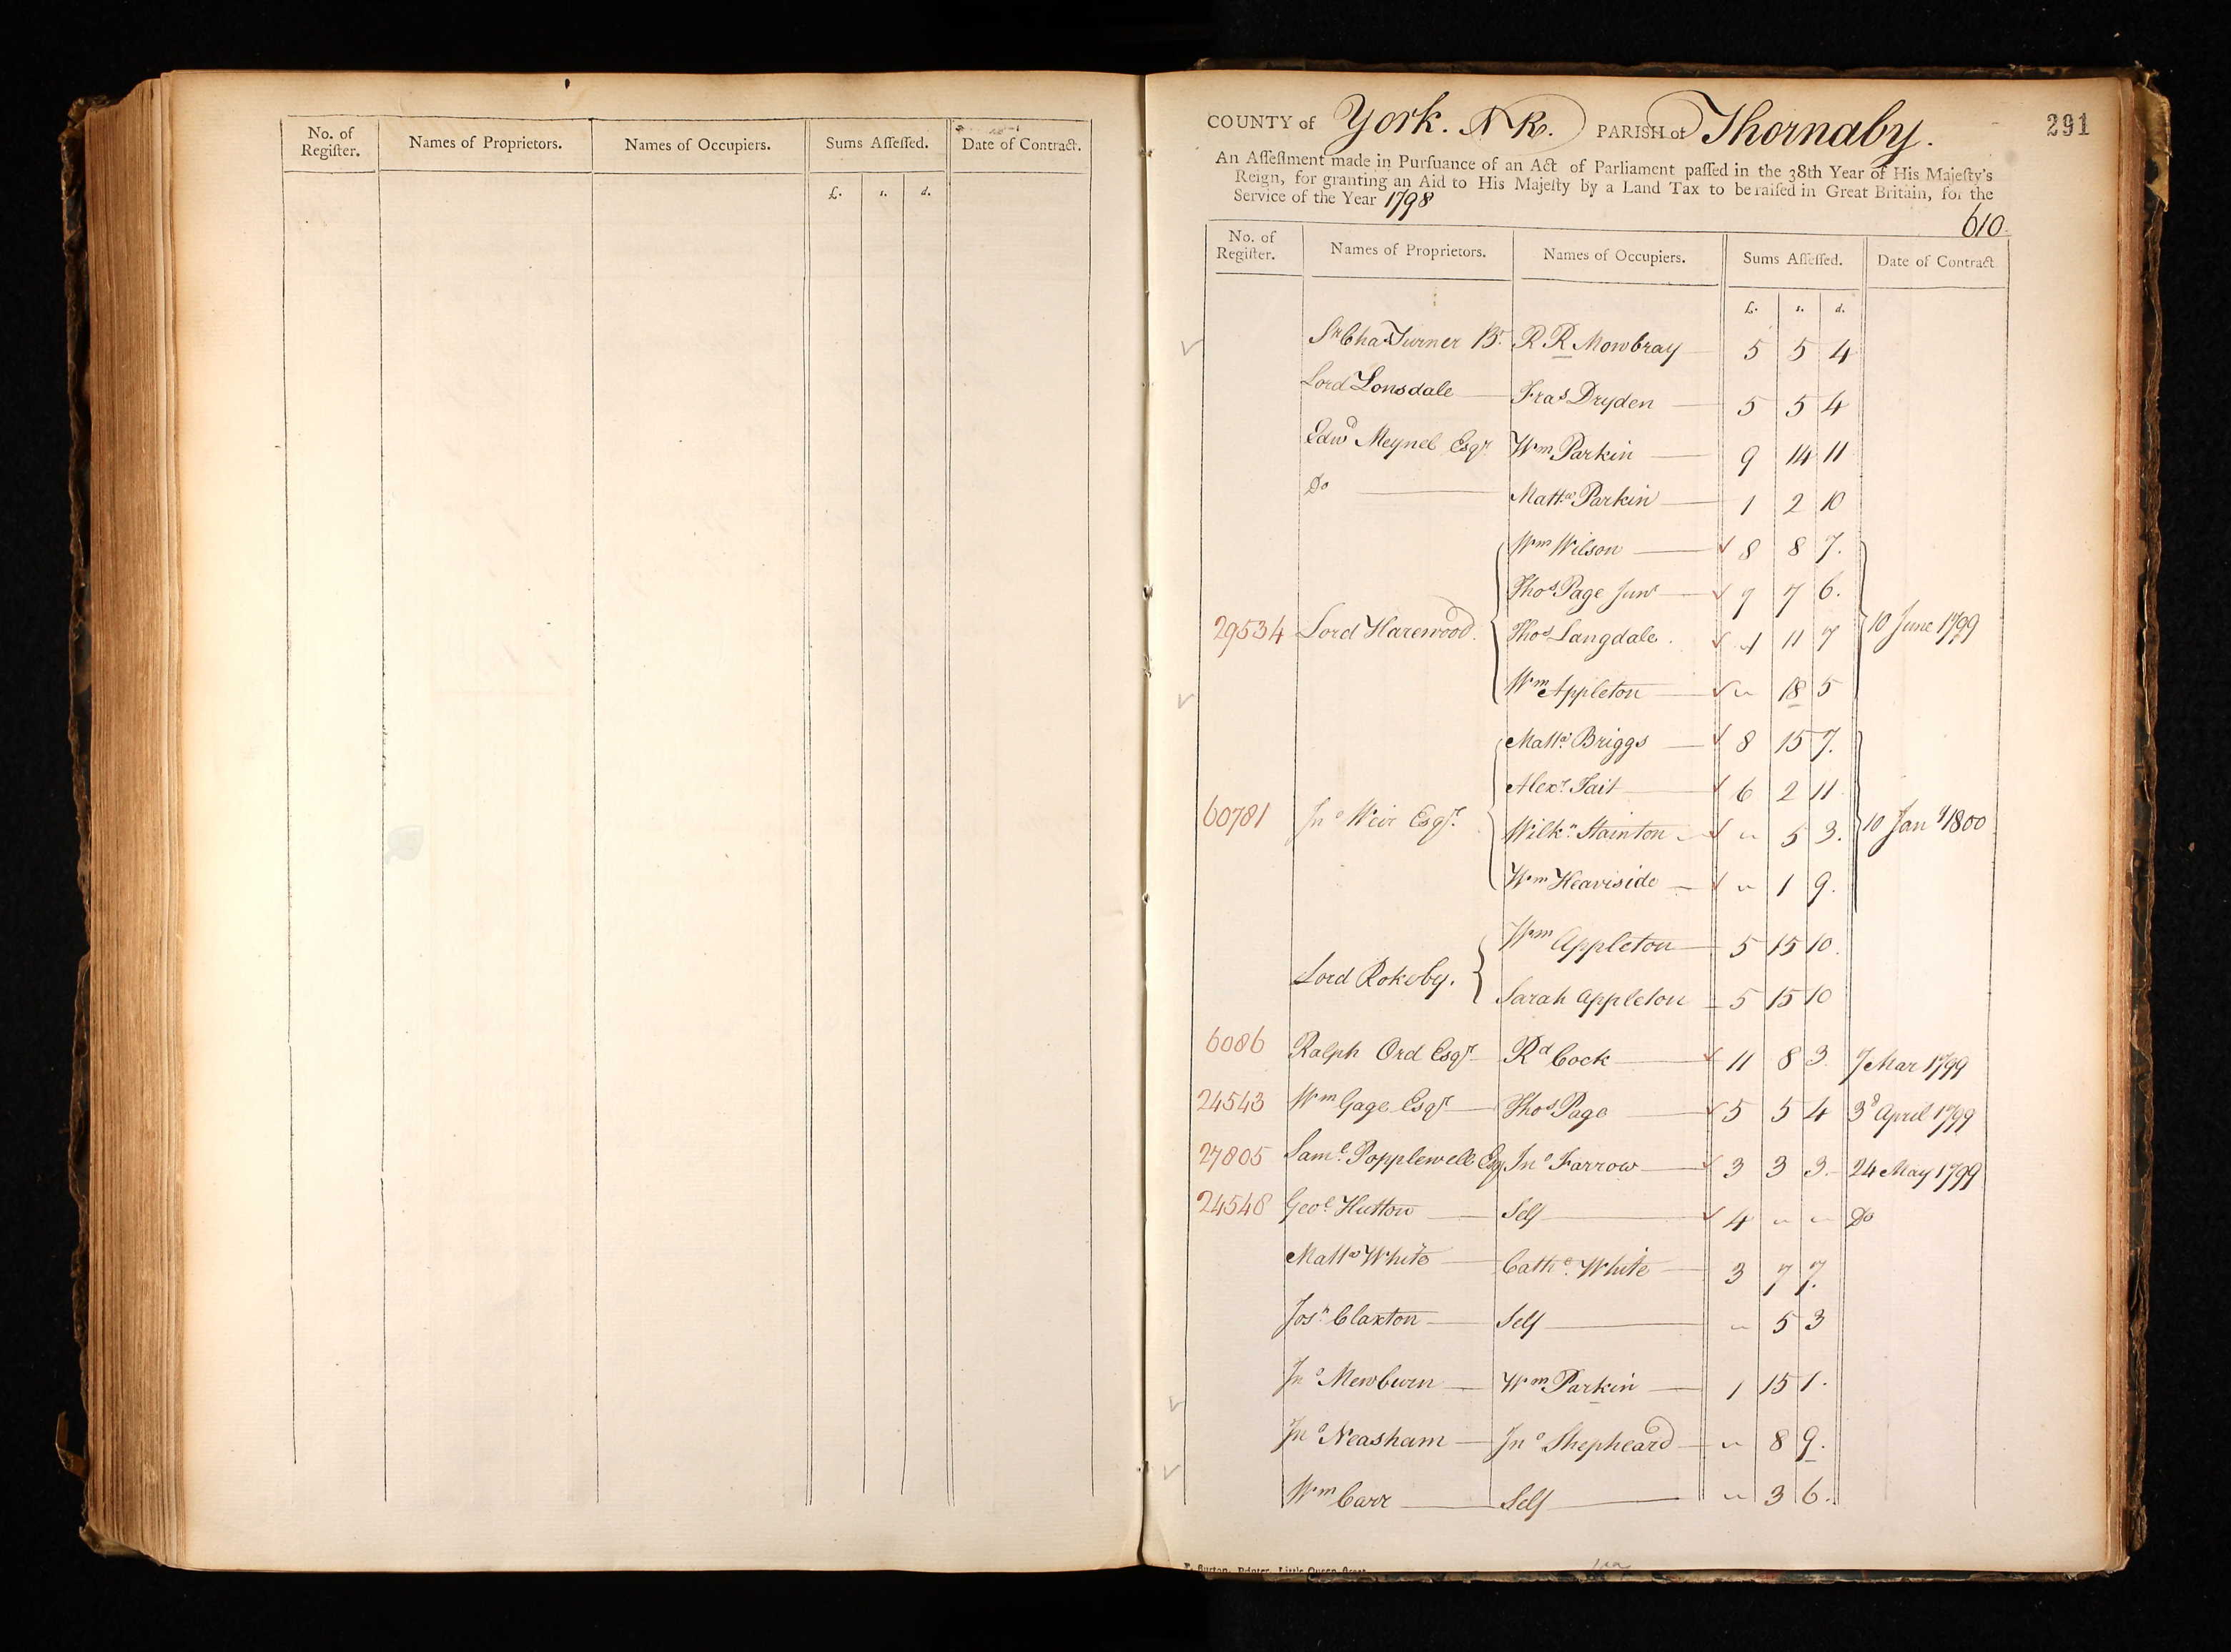 No. of Regiſter. Names of Proprietors. Names of Occupiers. Sums Aſſeſſed. Date of Contract.
£. s. d.
COUNTY of York. N R. PARISH of Thornaby. 291
An Aſſeſſment made in Purſuance of an Act of Parliament paſſed in the 38th Year of His Majeſty's
Reign, for granting an Aid to His Majeſty by a Land Tax to be raiſed in Great Britain, for the
Service of the Year 1798
610
No. of Regiſter. Names of Proprietors. Names of Occupiers. Sums Aſſeſſed. Date of Contract
£. s. d.
Sr Chas Turner Bt. R R Mowbray 5 5 4
Lord Lonsdale Fras Dryden 5 5 4
Edwd Meynel Esqr Wm Parkin 9 14 11
Do Mattw Parkin 1 2 10
Wm Wilson 8 8 7.
Thos Page Junr 7 6.
29534 Lord Harewood. Thos Langdale. 11 7 10 June 1799
Wm Appleton 18 5
Mattw Briggs 8 15 7.
Alexr Tait 6 2 11
60781 Jno Weir Esqr. Wilkn Stainton 5 3. 10 Jany 1800
Wm Heaviside 1 9.
Wm Appleton 5 15 10.
Lord Rokeby.
Sarah Appleton 5 15 10
6086 Ralph Ord Esqr Rd Cock 11 8 3 7 Mar 1799
24543 Wm Gage Esqr Thos Page 5 5 4 3d April 1799
27805 Saml Popplewell Esq Jno Farrow 3 3 3 24 May 1799
24548 Geoe Hutton Self 4 Do
Mattw White Cathe White 3 7 7.
Josh Claxton Self 5 3
Jno Mewburn Wm Parkin 1 15 1.
Jno Neasham Jno Shepheard 8 9.
Wm Carr Self 3 6.